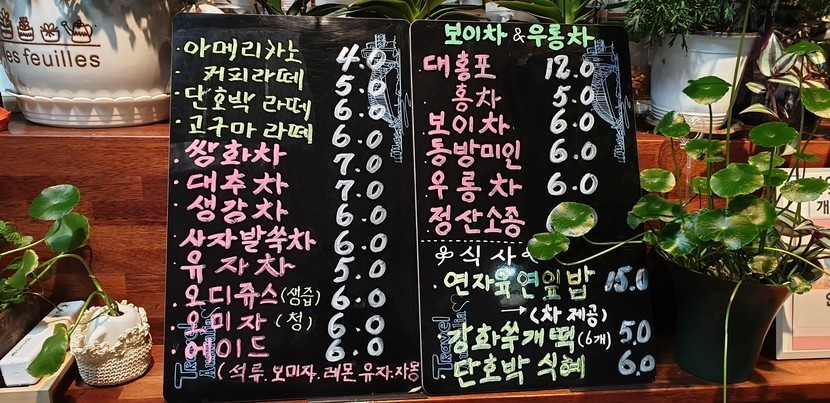 les feuilles
· 아메리카노 4.0
· 커피라떼 5.0
· 단호박 라떼 6.0
· 고구마 라떼 6.0
· 쌍화차 7.0
· 대추차 7.0
· 생강차 6.0
· 사자발쑥차 6.0
· 유자차 5.0
· 오디쥬스(생즙) 6.0
· 오미자 (청) 6.0
· 에이드 6.0
(석류.오미자.레몬 유자.자몽
Travel
Australia
보이차 & 우롱차
대홍포 12.0
홍차 5.0
보이차 6.0
동방미인 6.0
우롱차 6.0
정산소종
식사
· 연자육연잎밥 15.0
→(차 제공)
· 강화쑥개떡(6개) 5.0
· 단호박 식혜 6.0
Travel
Australia